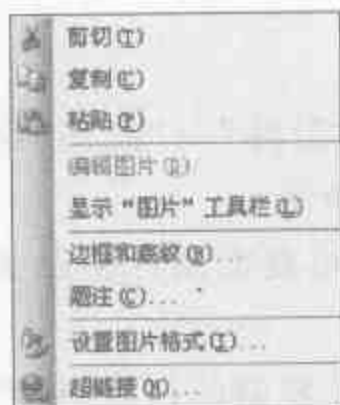 剪切(T)
复制(C)
粘贴(P)
编辑图片(I)
显示“图片”工具栏(L)
边框和底纹(B)...
题注(C)...
设置图片格式(I)...
超链接(H)...